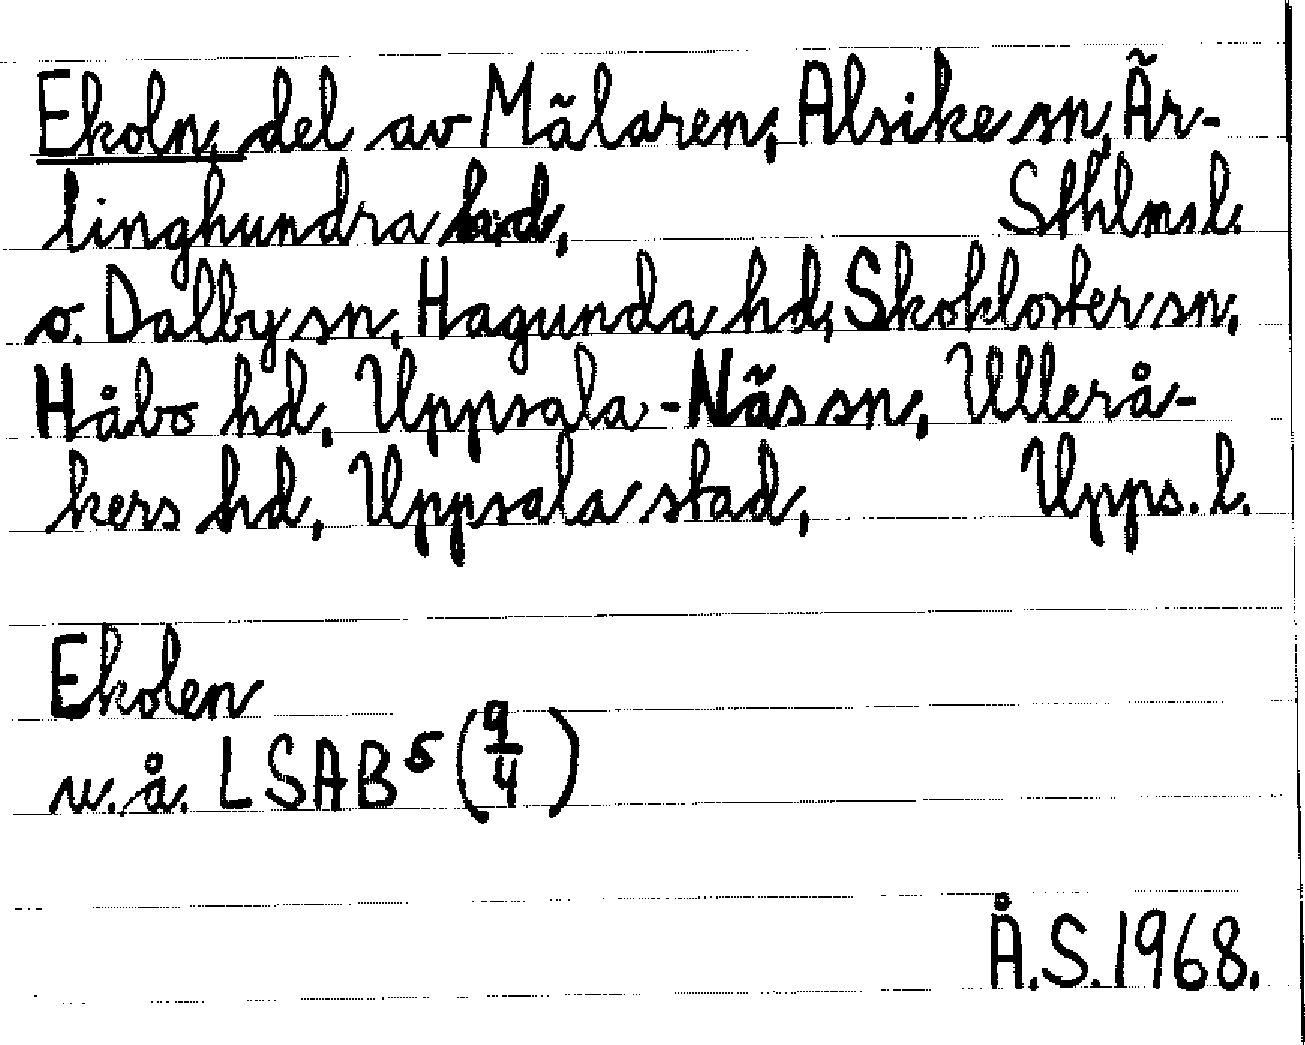 Ekoln, del av Mälaren, Alsike sn, Är-
linghundra hd, Sthlms l.
o. Dalby sn, Hagunda hd, Skokloster sn,
Håbo hd, Uppsala-Näs sn, Ullerå-
kers hd, Uppsala stad, Upps. l.
Ekolen
u.å. LSAB⁵ (9/4)
Å.S. 1968.